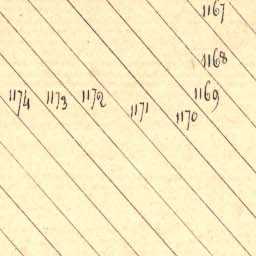 1167
1168
1169
1174 1173 1172 1171 1170